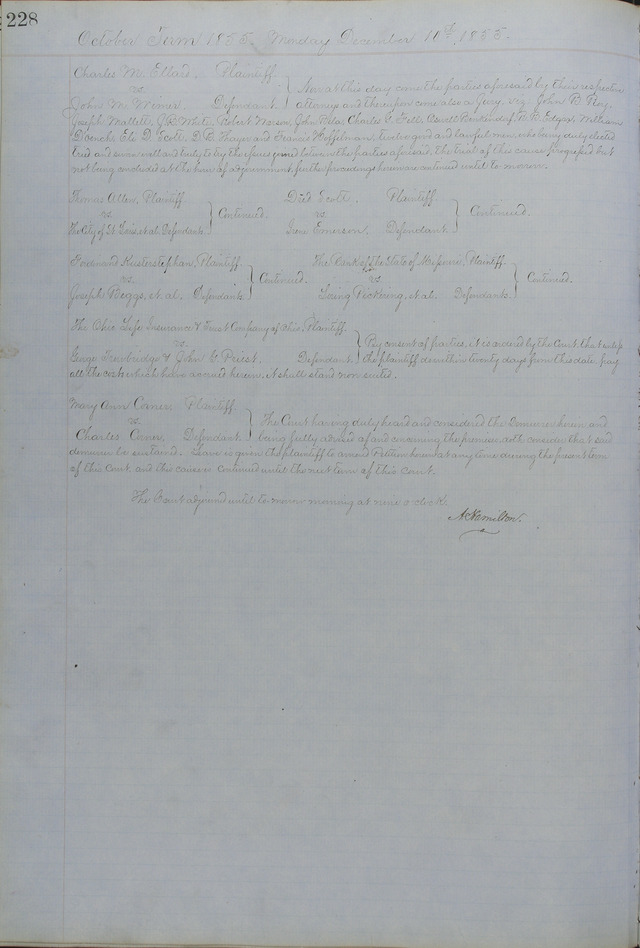 228
October Term 1855. Monday December 10th, 1855.
Charles M. Ellard. Plaintiff
vs. Now at this day come the parties aforesaid by their respective
John M. Wimer. Defendant. attorneys and thereupon comes also a Jury. viz. John B.
Joseph Mallett, J. B. White, Robert John Charles Edgar, William
Eli D. Scott, D. B. Thayer and Francis Hoffelman twelve good and lawful men, who being duly elected
tried and sworn well and truly to try the issues joined between the parties aforesaid. The trial of this cause progressed but
not being concluded at the hour of adjournment, further proceedings herein are continued until to morrow.
Thomas Allen, Plaintiff Dred Scott. Plaintiff.
vs. Continued. vs. Continued.
The City of St. Louis, et al. Defendants. Irene Emerson, Defendant
Ferdinand Plaintiff. The Bank of the State of Missouri, Plaintiff.
vs. Continued. vs. Continued.
Joseph Boggs, et. al. Defendants. Loring Pickering, et al. Defendants.
The Ohio Life Insurance & Trust Company of Ohio, Plaintiff.
vs. By consent of parties, it is ordered by the Court, that unless
George Trowbridge & John G. Priest. Defendant. the plaintiff do within twenty days from this date, pay
all the costs which have accrued herein, it shall stand non suited.
Mary Ann Plaintiff
vs. The Court having duly heard and considered the Demurrer herein and
Charles Defendant. being fully advised of and concerning the premises, doth consider that said
demurrer be sustained. Leave is given the plaintiff to amend Petition herein at any time during the present term
of this Court and this cause is continued until the next term of this Court.
The Court adjourned until to morrow morning at nine o'clock.
A. Hamilton.